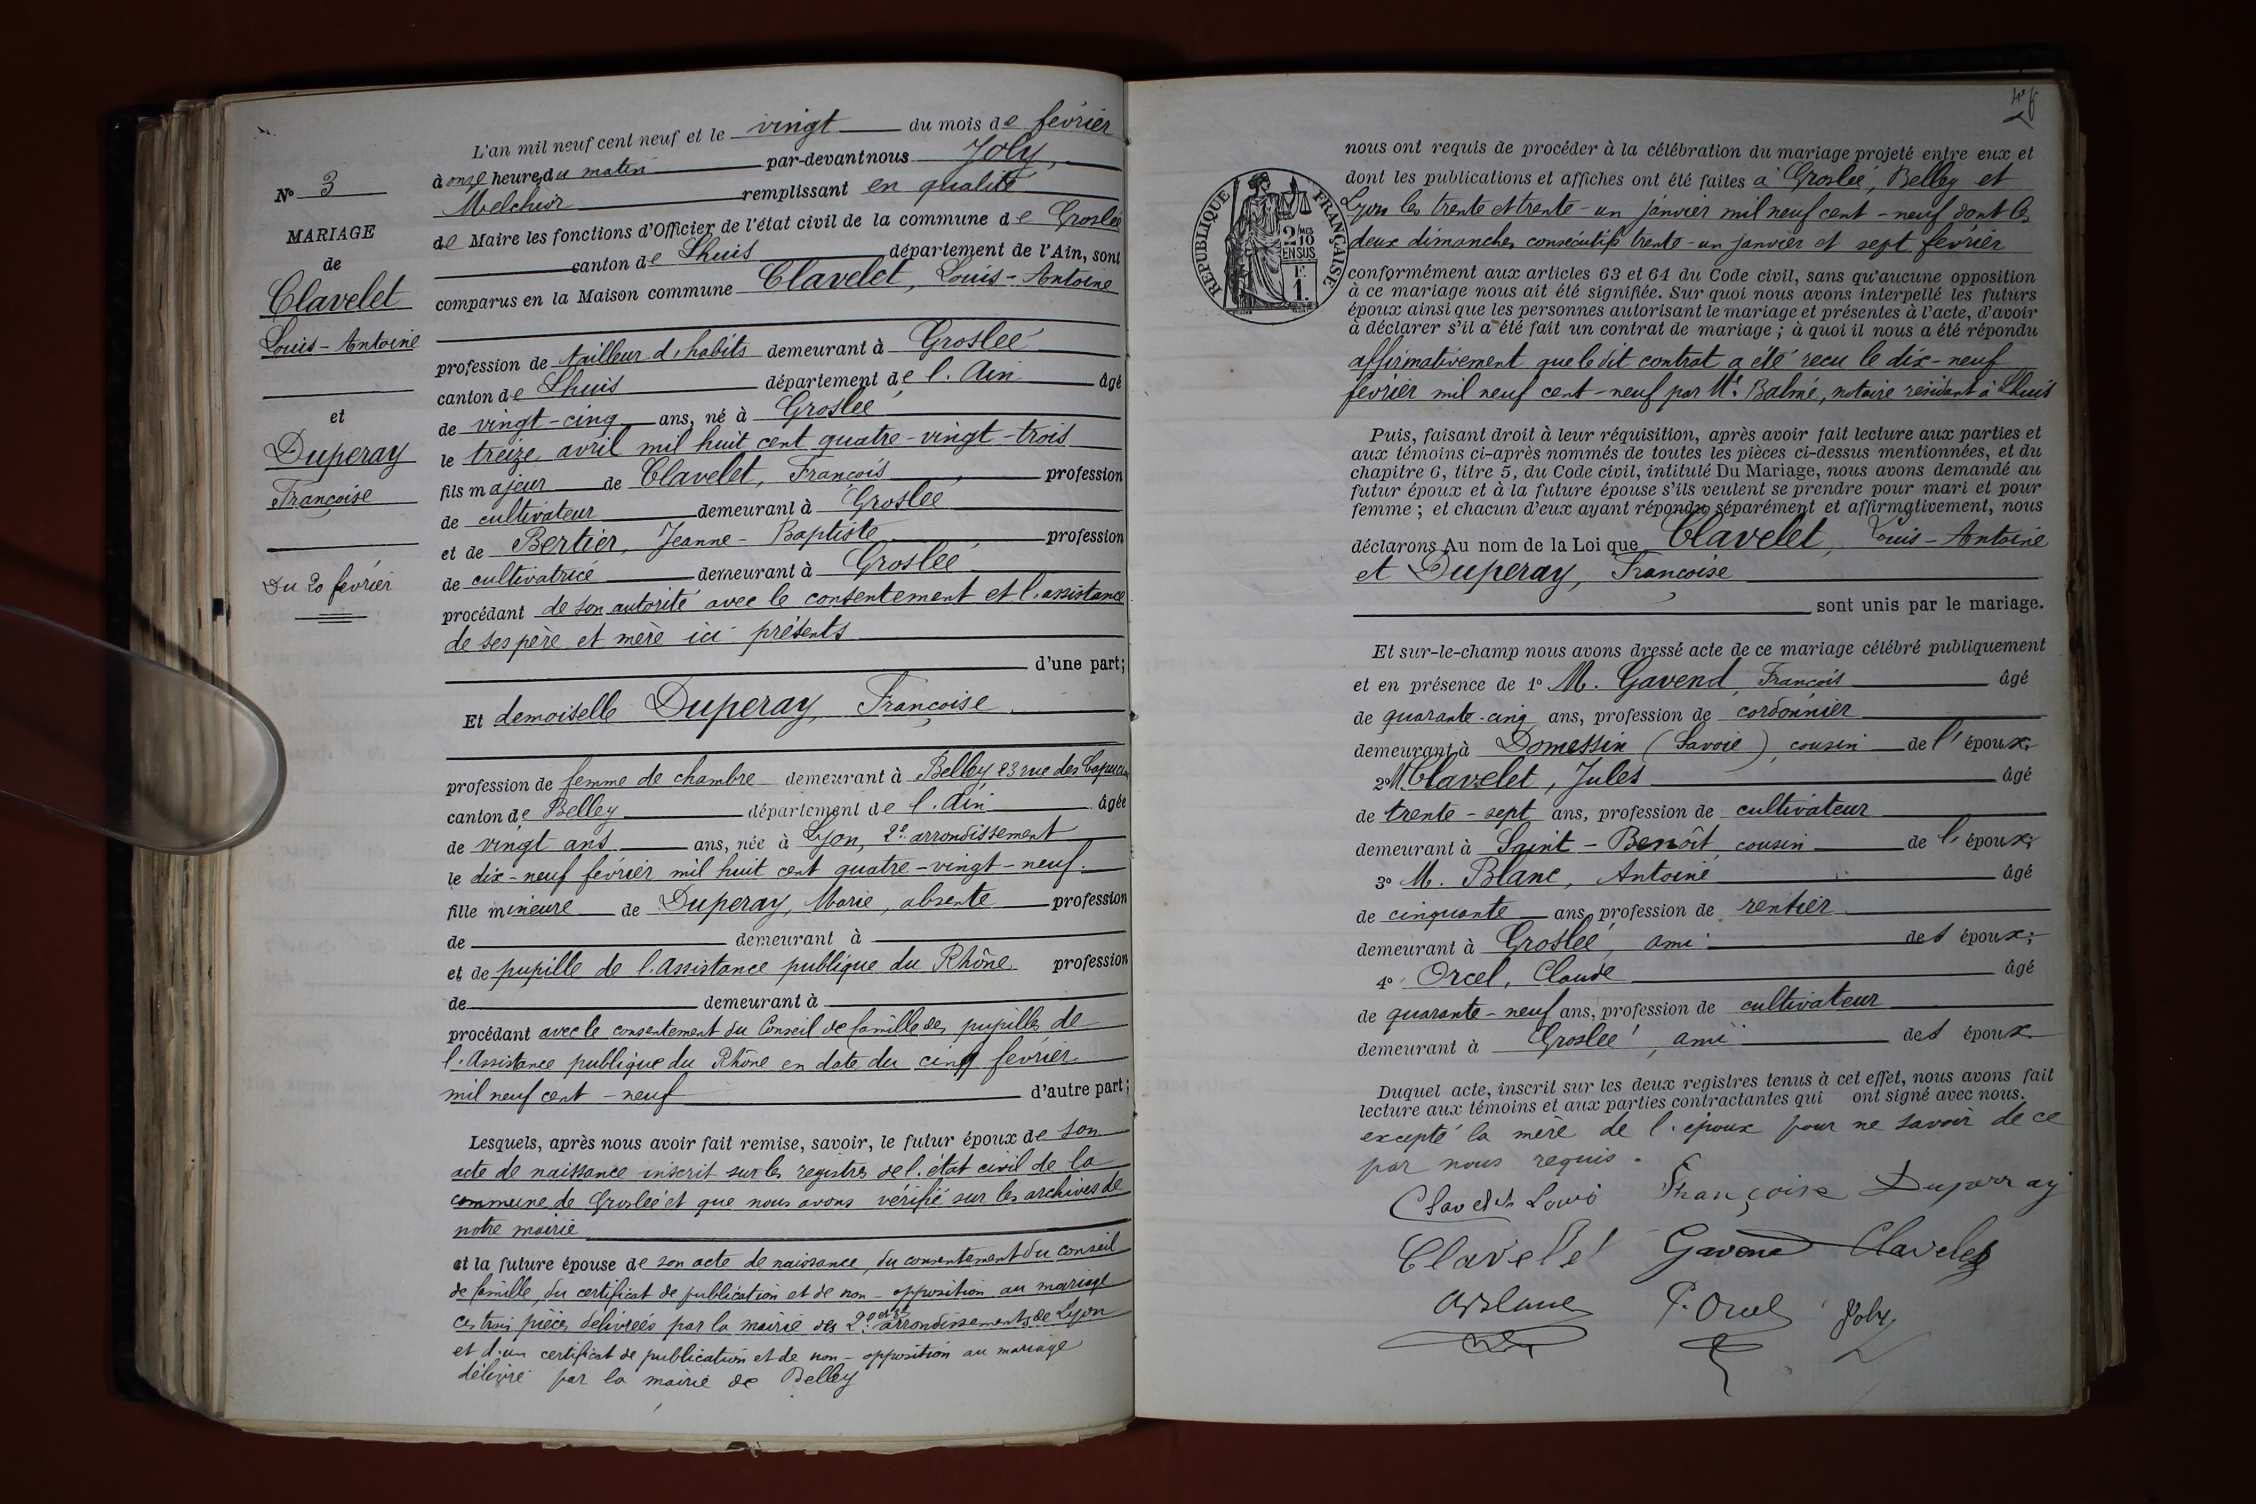 N° 3
MARIAGE
de
Clavelet
Louis-Antoine
et
Duperay
Françoise
Du 20 février
L'an mil neuf cent neuf et le vingt du mois de février
à onze heures du matin par-devant nous Joly,
Melchior remplissant en qualité
de Maire les fonctions d'Officier de l'état civil de la commune de Groslée
canton de Lhuis département de l'Ain, sont
comparus en la Maison commune Clavelet, Louis-Antoine
profession de tailleur d'habits demeurant à Groslée
canton de Lhuis département de l'Ain âgé
de vingt-cinq ans, né à Groslée
le treize avril mil huit cent quatre-vingt-trois
fils majeur de Clavelet, François profession
de cultivateur demeurant à Groslée
et de Bertier, Jeanne-Baptiste profession
de cultivatrice demeurant à Groslée
procédant de son autorité avec le consentement et l'assistance
de ses père et mère ici présents
d'une part;
Et demoiselle Duperay, Françoise
profession de femme de chambre demeurant à Belley 23 rue des Capucins
canton de Belley département de l'Ain âgée
de vingt ans ans, née à Lyon, 2e arrondissement
le dix-neuf février mil huit cent quatre-vingt-neuf.
fille mineure de Duperay, Marie, absente profession
de demeurant à
et de pupille de l'Assistance publique du Rhône profession
de demeurant à
procédant avec le consentement du Conseil de famille des pupilles de
l'Assistance publique du Rhône en date du cinq février
mil neuf cent-neuf d'autre part;
Lesquels, après nous avoir fait remise, savoir, le futur époux de son
acte de naissance inscrit sur les registres de l'état civil de la
commune de Groslée et que nous avons vérifié sur les archives de
notre mairie
et la future épouse de son acte de naissance, du consentement du conseil
de famille, du certificat de publication et de non-opposition au mariage
ces trois pièces délivrées par la mairie des 2e arrondissements de Lyon
et d'un certificat de publication et de non-opposition au mariage
délivré par la mairie de Belley
nous ont requis de procéder à la célébration du mariage projeté entre eux et
dont les publications et affiches ont été faites à Groslée, Belley et
Lyon les trente et trente-un janvier mil neuf cent-neuf dont les
deux dimanches consécutifs trente-un janvier et sept février
conformément aux articles 63 et 64 du Code civil, sans qu'aucune opposition
à ce mariage nous ait été signifiée. Sur quoi nous avons interpellé les futurs
époux ainsi que les personnes autorisant le mariage et présentes à l'acte, d'avoir
à déclarer s'il a été fait un contrat de mariage; à quoi il nous a été répondu
affirmativement que le dit contrat a été reçu le dix-neuf
février mil neuf cent-neuf par Me Balmé, notaire résidant à Lhuis
Puis, faisant droit à leur réquisition, après avoir fait lecture aux parties et
aux témoins ci-après nommés de toutes les pièces ci-dessus mentionnées, et du
chapitre 6, titre 5, du Code civil, intitulé Du Mariage, nous avons demandé au
futur époux et à la future épouse s'ils veulent se prendre pour mari et pour
femme; et chacun d'eux ayant répondu séparément et affirmativement, nous
déclarons Au nom de la Loi que Clavelet, Louis-Antoine
et Duperay, Françoise
sont unis par le mariage.
Et sur-le-champ nous avons dressé acte de ce mariage célébré publiquement
et en présence de 1° M. Gavend, François âgé
de quarante-cinq ans, profession de cordonnier
demeurant à Domessin (Savoie), cousin de l'époux;
2° M. Clavelet, Jules âgé
de trente-sept ans, profession de cultivateur
demeurant à Saint-Benoît, cousin de l'époux;
3° M. Blanc, Antoine âgé
de cinquante ans, profession de rentier
demeurant à Groslée, ami des époux;
4° Orcel, Claude âgé
de quarante-neuf ans, profession de cultivateur
demeurant à Groslée, ami des époux.
Duquel acte, inscrit sur les deux registres tenus à cet effet, nous avons fait
lecture aux témoins et aux parties contractantes qui ont signé avec nous.
excepté la mère de l'époux pour ne savoir de ce
par nous requis.
Clavelet Louis Françoise Duperray
Clavelet Gavend Clavelet
A Blanc C. Orcel Joly
RÉPUBLIQUE FRANÇAISE
2/10
EN SUS
F.
1.